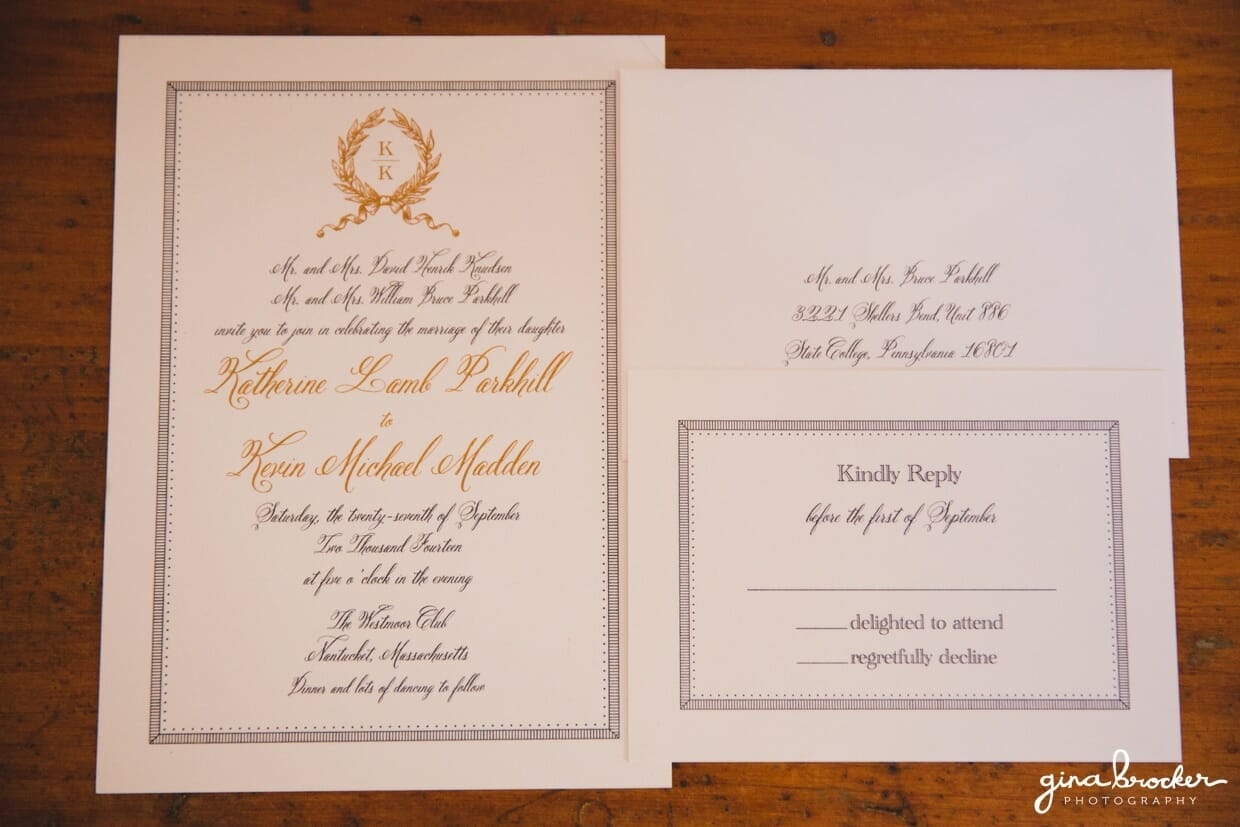 K
K
Mr. and Mrs. David Henrik Knudsen
Mr. and Mrs. William Bruce Parkhill
invite you to join in celebrating the marriage of their daughter
Katherine Lamb Parkhill
to
Kevin Michael Madden
Saturday, the twenty-seventh of September
Two Thousand Fourteen
at five o'clock in the evening
The Westmoor Club
Nantucket, Massachusetts
Dinner and lots of dancing to follow
Mr. and Mrs. Bruce Parkhill
3221 Shellers Bend, Unit 886
State College, Pennsylvania 16801
Kindly Reply
before the first of September
delighted to attend
regretfully decline
gina brocker
PHOTOGRAPHY